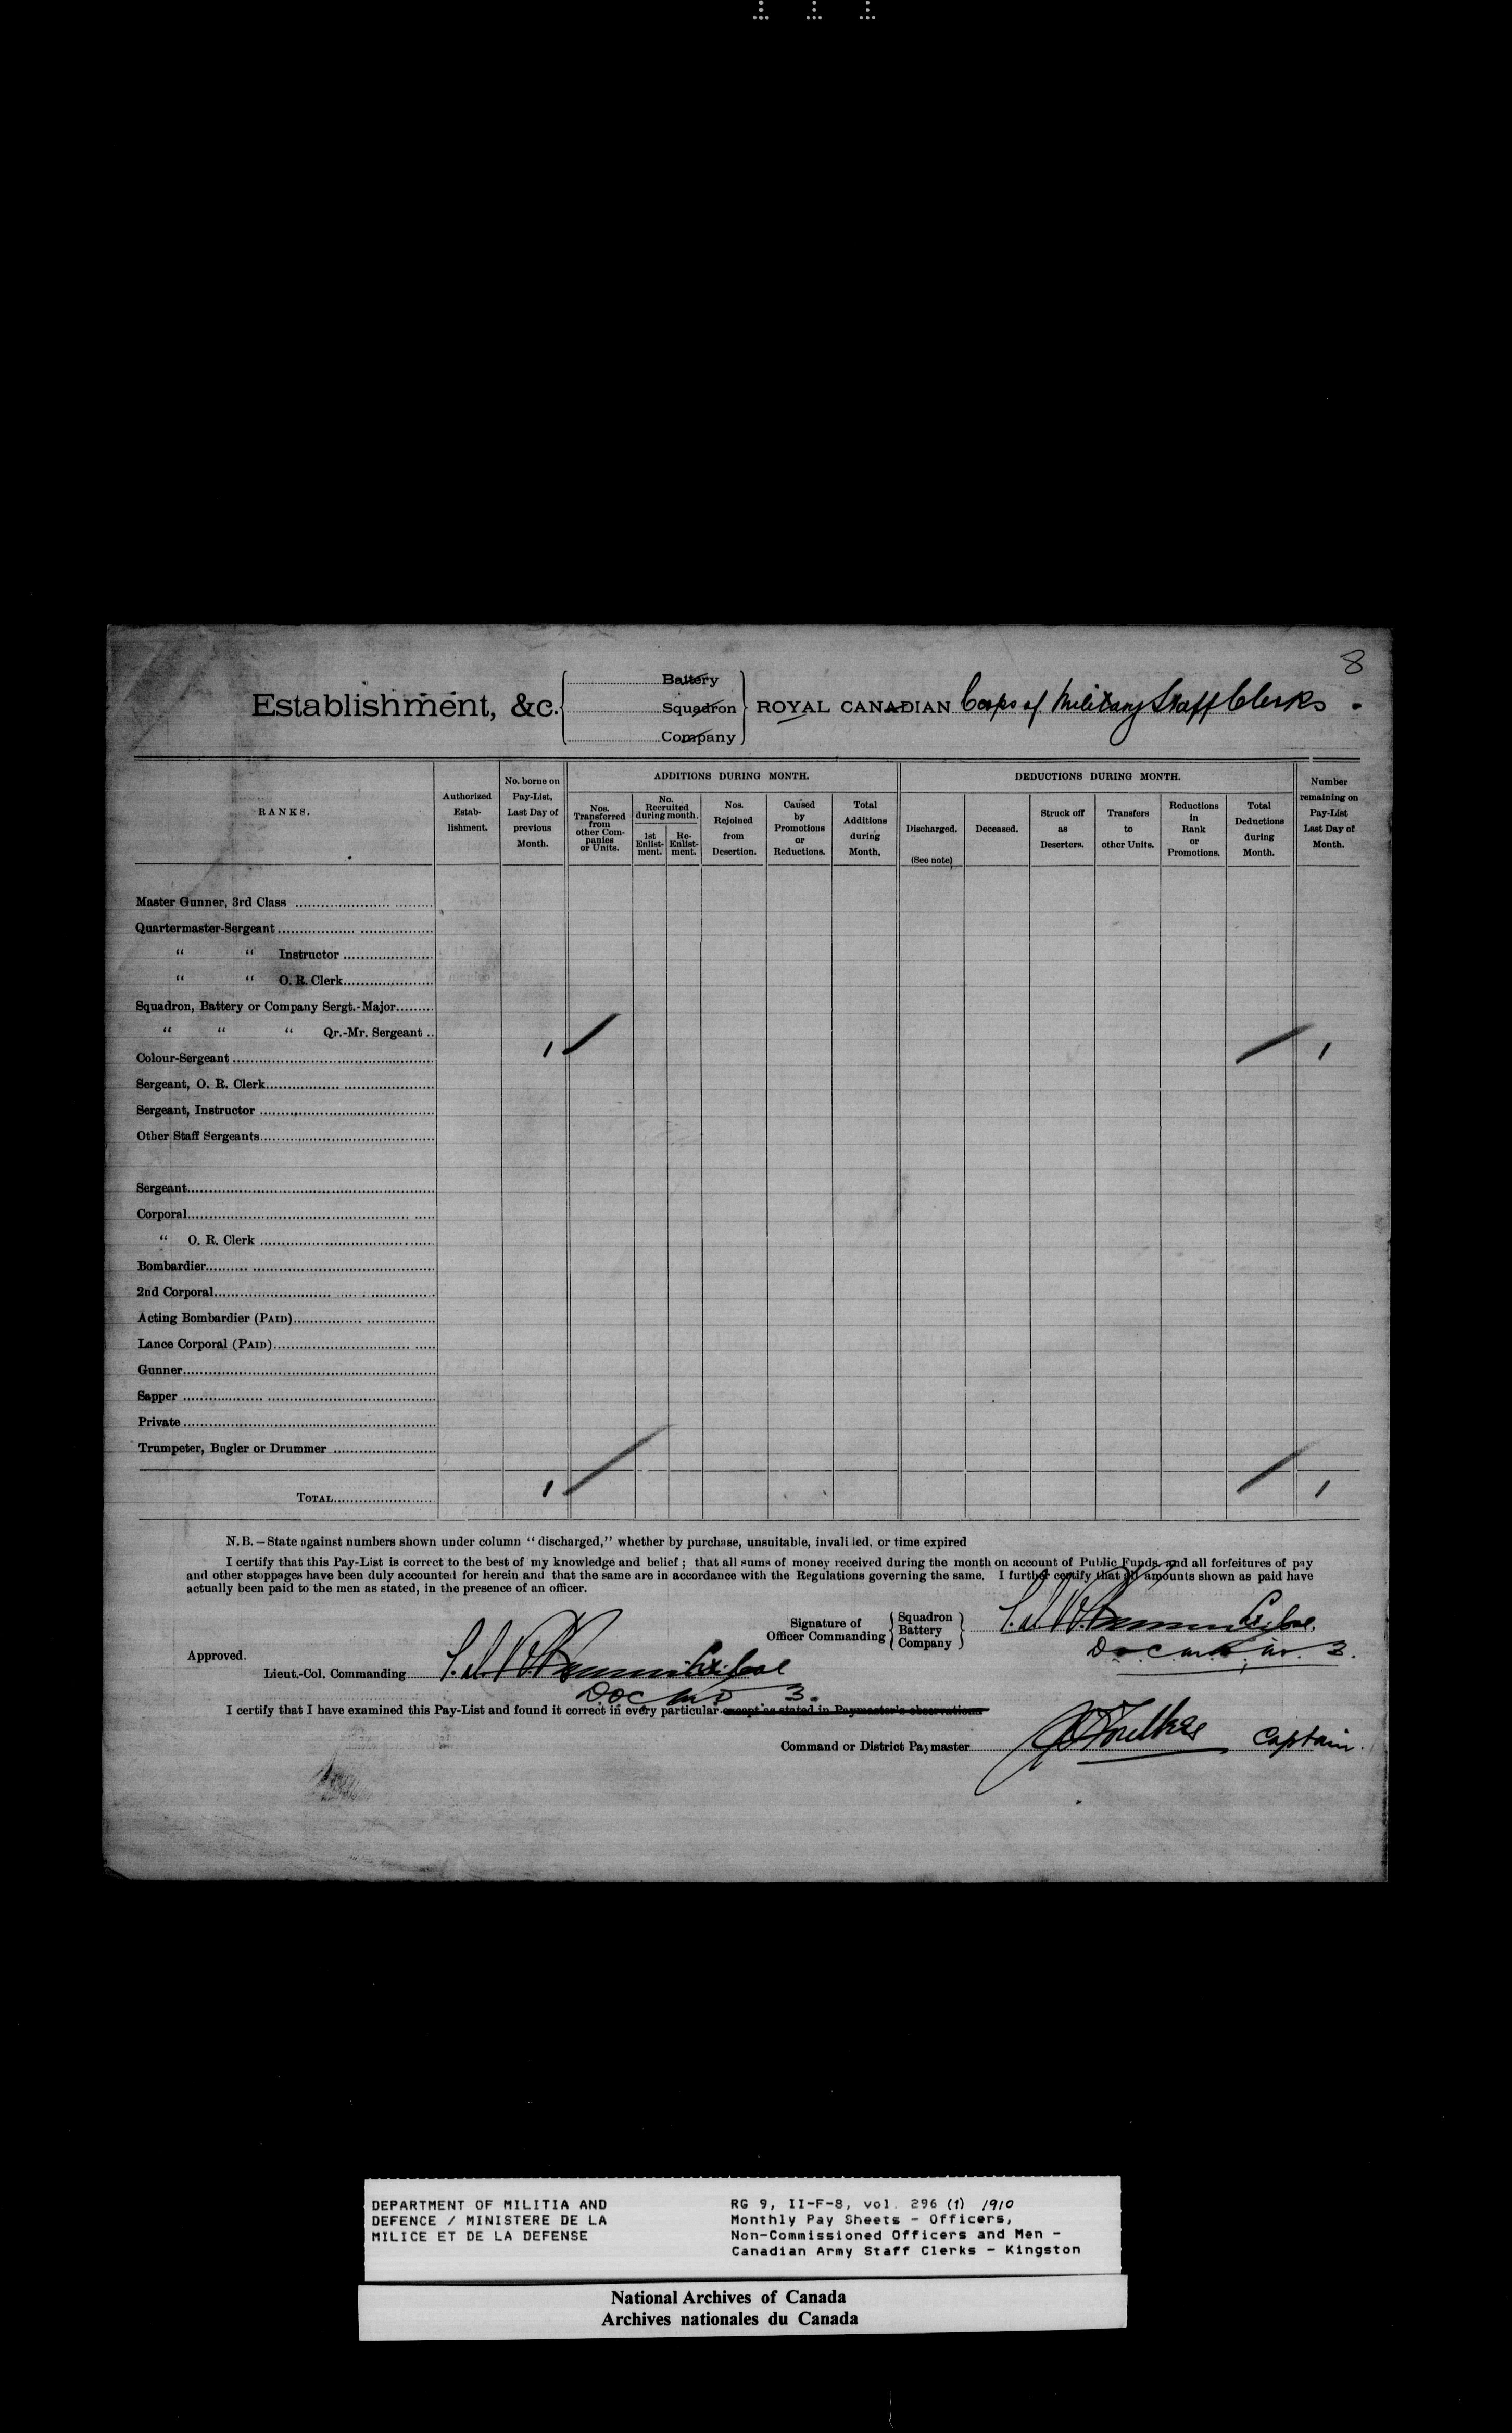 8
Establishment, &c. Battery Squadron Company ROYAL CANADIAN Corps of Military Staff Clerks.
RANKS.
Authorized Estab- lishment.
No. borne on Pay-List, Last Day of previous Month.
ADDITIONS DURING MONTH.
Nos. Transferred from other Com- panies or Units.
No. Recruited during month.
1st Enlist- ment.
Re- Enlist- ment.
Nos. Rejoined from Desertion.
Caused by Promotions or Reductions.
Total Additions during Month.
DEDUCTIONS DURING MONTH.
Discharged. (See note)
Deceased.
Struck off as Deserters.
Transfers to other Units.
Reductions in Rank or Promotions.
Total Deductions during Month.
Number remaining on Pay-List Last Day of Month.
Master Gunner, 3rd Class
Quartermaster-Sergeant
" " Instructor
" " O. R. Clerk
Squadron, Battery or Company Sergt.-Major
" " " Qr.-Mr. Sergeant
Colour-Sergeant 1 1
Sergeant, O. R. Clerk
Sergeant, Instructor
Other Staff Sergeants
Sergeant
Corporal
" O. R. Clerk
Bombardier
2nd Corporal
Acting Bombardier (PAID)
Lance Corporal (PAID)
Gunner
Sapper
Private
Trumpeter, Bugler or Drummer
TOTAL 1 1
N.B.—State against numbers shown under column "discharged," whether by purchase, unsuitable, invali led, or time expired
I certify that this Pay-List is correct to the best of my knowledge and belief; that all sums of money received during the month on account of Public Funds, and all forfeitures of pay
and other stoppages have been duly accounted for herein and that the same are in accordance with the Regulations governing the same. I further certify that all amounts shown as paid have
actually been paid to the men as stated, in the presence of an officer.
Signature of Officer Commanding Squadron Battery Company Lt. Col.
DOC M.D. No. 3.
Approved.
Lieut.-Col. Commanding Lt. Col
DOC MD 3.
I certify that I have examined this Pay-List and found it correct in every particular except as stated in Paymaster's observations
Command or District Paymaster Captain.
DEPARTMENT OF MILITIA AND
DEFENCE / MINISTERE DE LA
MILICE ET DE LA DEFENSE
RG 9, II-F-8, vol. 296 (1) 1910
Monthly Pay Sheets - Officers,
Non-Commissioned Officers and Men -
Canadian Army Staff Clerks - Kingston
National Archives of Canada
Archives nationales du Canada